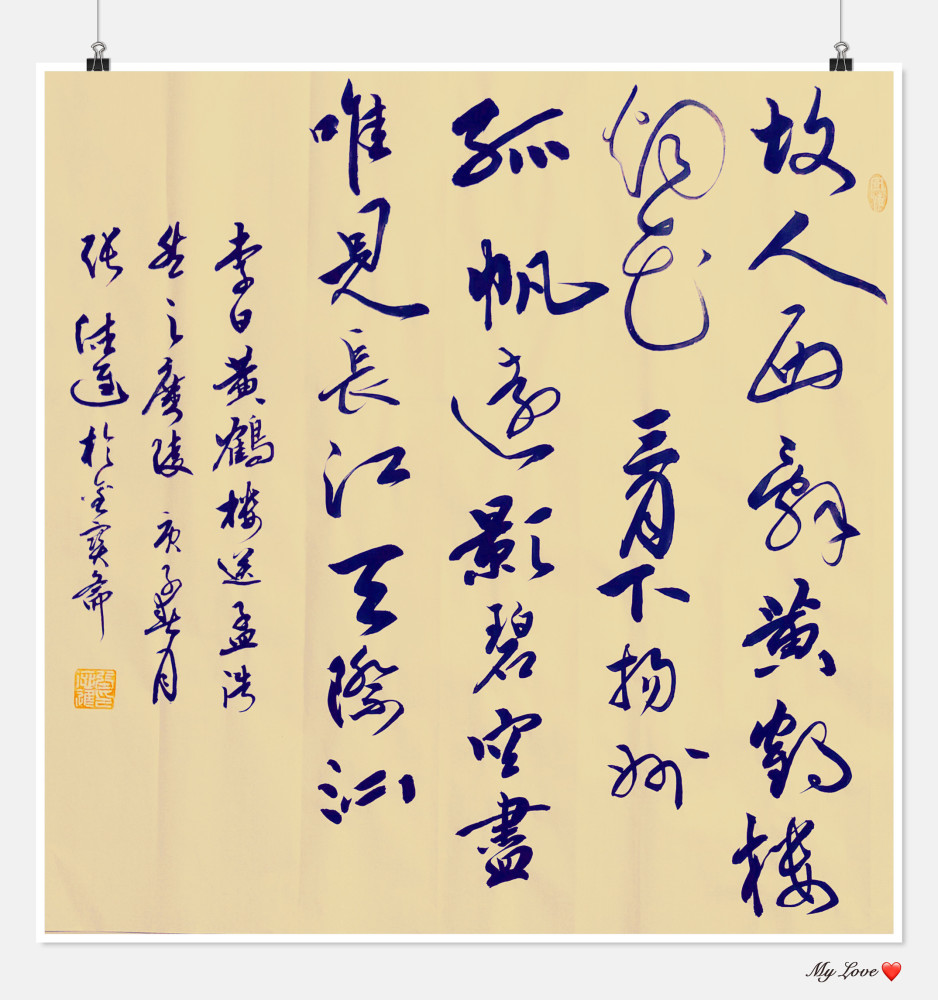 故人西辭黄鶴楼
烟花三月下揚州
孤帆遠影碧空盡
唯見長江天際流
李白黄鶴楼送孟浩
然之廣陵 庚子春月
張 於 齋
My Love